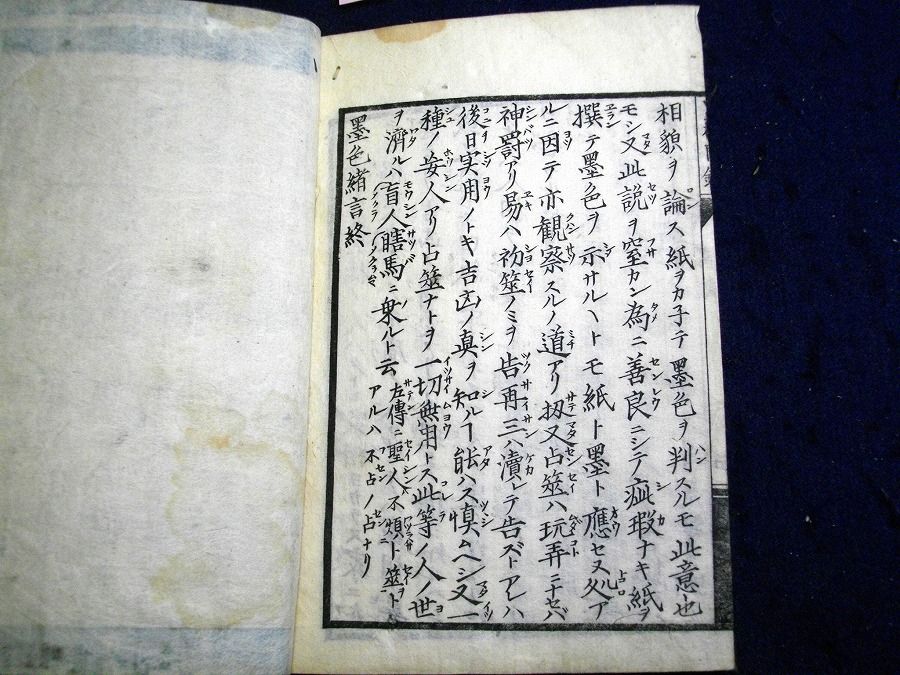 相貌ヲ論ス紙ヲカ子テ墨色ヲ判スルモ此意也
モシ又此説ヲ窒カン為ニ善良ニシテ疵瑕ナキ紙ヲ
撰テ墨色ヲ示サルヽトモ紙ト墨ト應セヌ処ア
ルニ因テ亦観察スルノ道アリ扨又占筮ハ玩弄ニナセバ
神罰アリ易ハ初筮ノミヲ告再三ハ瀆レテ告ズトアレハ
後日実用ノトキ吉凶ノ真ヲ知ルヿ能ハス慎ムヘシ又一
種ノ妄人アリ占筮ナトヲ一切無用トス此等ノ人ノ世
ヲ濟ルハ盲人瞎馬ニ乗ルト云 左傳ニ聖人不煩ト筮ト
アルハ不占ノ占ナリ
墨色緒言終